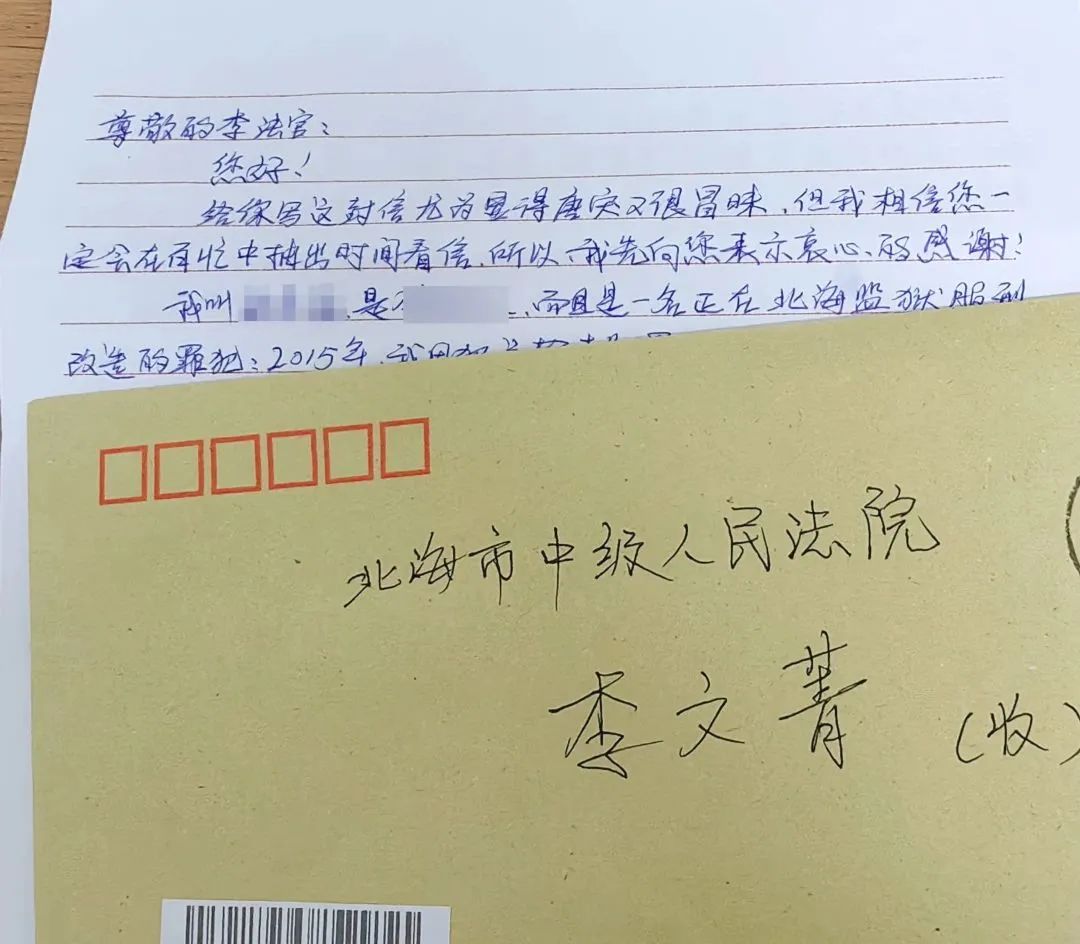 尊敬的李法官：
您好！
给你写这封信尤为显得唐突又很冒昧，但我相信您一
定会在百忙中抽出时间看信，所以，我先向您表示衷心的感谢！
我叫 是 而且是一名正在北海监狱服刑
改造的罪犯；2015年，我因
北海市中级人民法院
李文菁
（收）